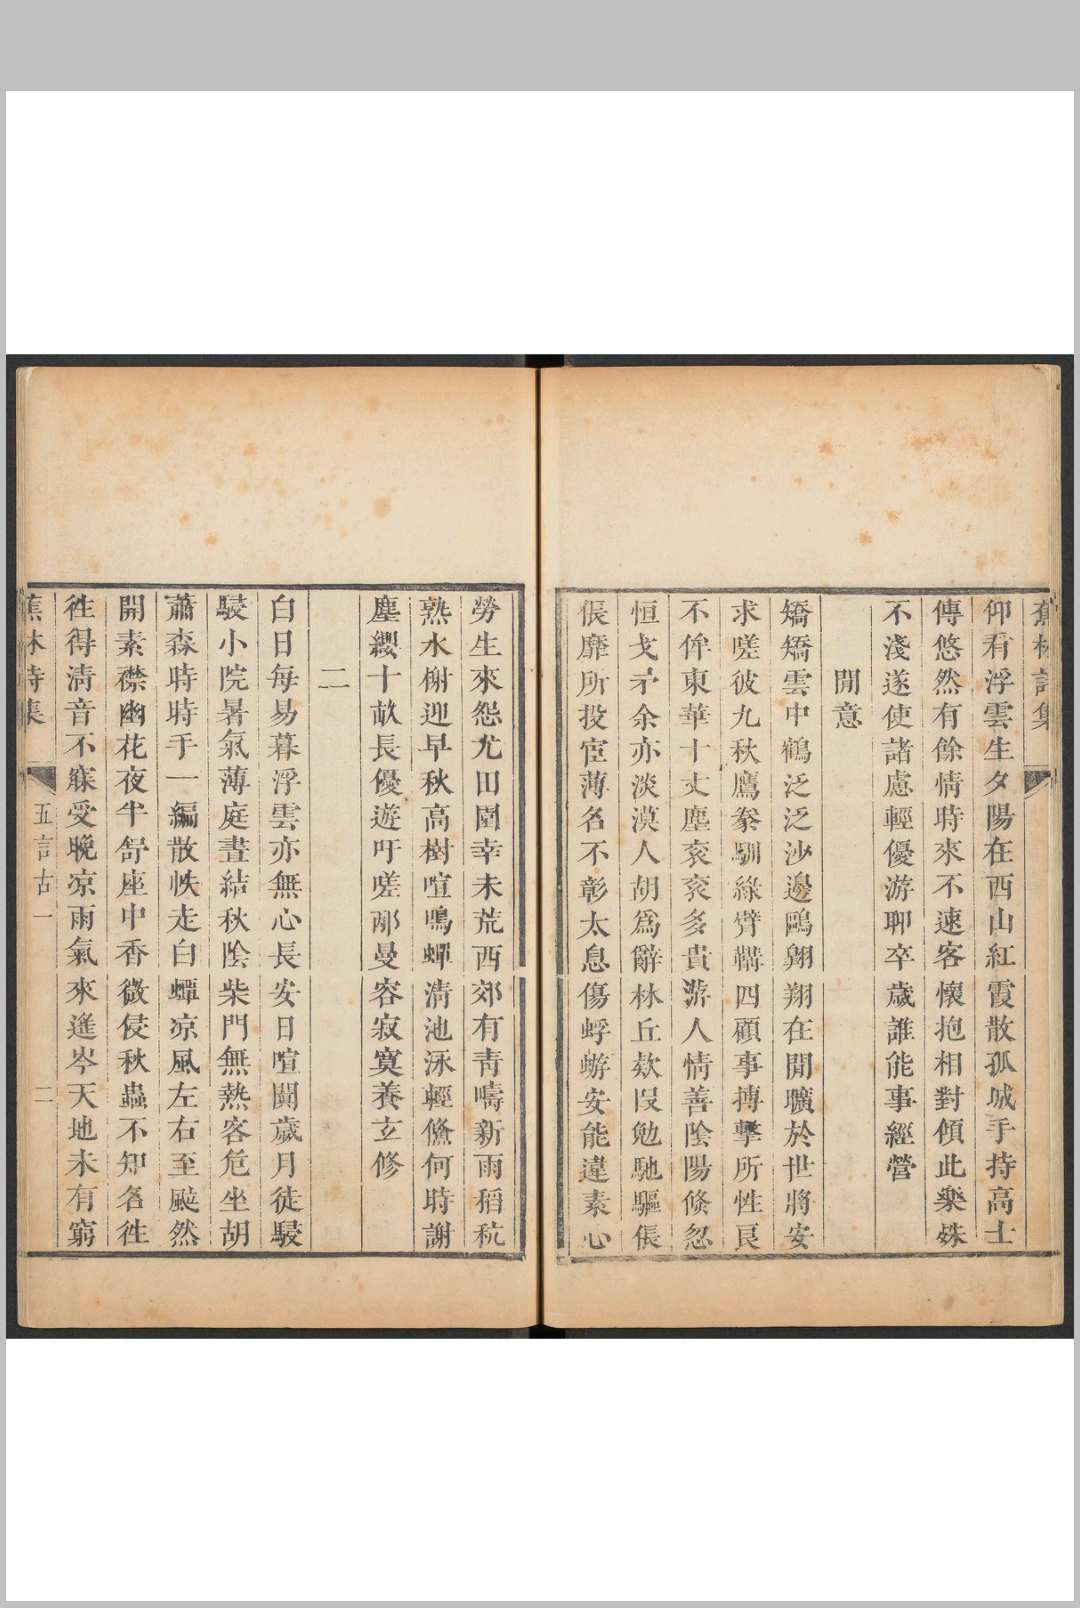 蕉林詩集
仰看浮雲生夕陽在西山紅霞散孤城手持高士
傳悠然有餘情時來不速客懷抱相對傾此樂殊
不淺遂使諸慮輕優游聊卒歲誰能事經營
閒意
矯矯雲中鶴泛泛沙邊鷗翺翔在閒曠於世將安
求嗟彼九秋鷹豢馴綠臂韝四顧事搏擊所性良
不侔東華十丈塵衮衮多貴游人情善陰陽倏忽
恒戈矛余亦淡漠人胡爲辭林丘欸叚勉馳驅倀
倀靡所投宦薄名不彰太息傷蜉蝣安能違素心
勞生來怨尤田園幸未荒西郊有靑疇新雨稻秔
熟水榭迎早秋高樹喧鳴蟬淸池泳輕鯈何時謝
塵纓十畝長優遊吁嗟邴曼容寂寞養玄修
二
白日每易暮浮雲亦無心長安日喧鬭歲月徒駸
駸小院暑氣薄庭晝結秋陰柴門無熱客危坐胡
蕭森時時手一編散帙走白蟫凉風左右至颯然
開素襟幽花夜半舒座中香微侵秋蟲不知名徃
徃得淸音不寐受晩凉雨氣來遙岑天地未有窮
蕉林詩集
五言古一
二